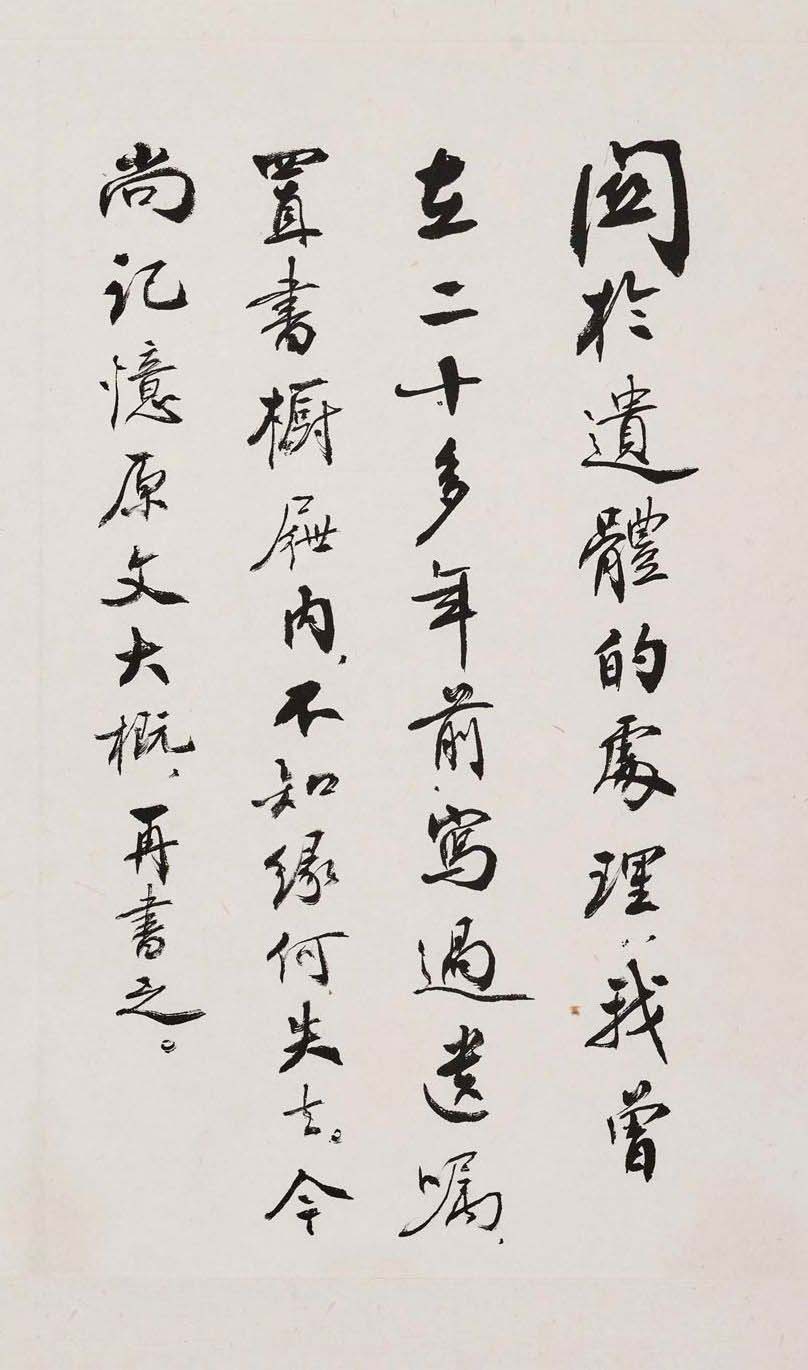 関於遺體的處理，我曾
在二十多年前寫過遗嘱，
置書櫥屜内，不知缘何失去。今
尚记憶原文大概，再書之。